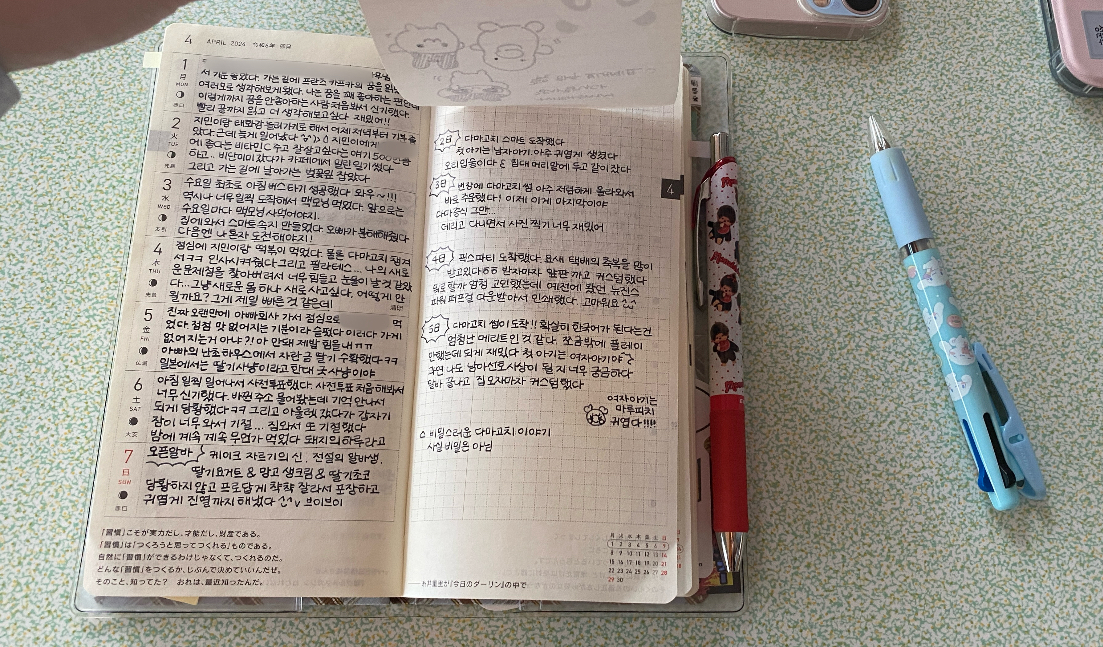 4 APRIL 2024 令和6年 卯月
1
月
MON
서 기분 좋았다. 가는 길에 프란츠 카프카의 꿈을 읽
여러모로 생각해보게 됐다. 나는 꿈을 꽤 좋아하는 편
이렇게까지 꿈을 안좋아하는 사람 처음봐서 신기했다.
빨리 끝까지 읽고 더 생각해보고싶다. 재밌어!!
赤口
2
火
TUE
지민이랑 태화강 놀러가기로 해서 어제 저녁부터
았다. 근데 늦게 일어났다 지민이에게
에 좋다는 비타민C 주고 잘살고싶다는 얘기 500만큼
하고.. 비단미미갔다가 카페에서 밀린일기 썼다
그리고 가는 길에 날아가는 벚꽃잎 잡았다
先勝
3
水
WED
수요일 최초로 아침버스타기 성공했다 와우~!!!
역시나 너무일찍 도착해서 맥모닝 먹었다. 앞으로는
수요일마다 맥모닝 사먹어야지.
집에와서 스마트 속지 만들었다 오빠가 해줬다
다음엔 나혼자 도전해야지!
友引
4
木
THU
점심에 지민이랑 떡볶이 먹었다. 물론 다마고치 챙겨
서ㅋㅋ 인사시켜줬다 그리고 필라테스... 나의 새로
운 문제점을 찾아버려서 너무 힘들고 눈물이 날것 같았
다...그냥 새로운 몸 하나 새로 사고싶다. 어떻게 안
될까요? 그게 제일 빠른 것 같은데
先負
5
金
FRI
진짜 오랜만에 아빠회사 가서 점심으로 먹
었다 점점 맛 없어지는 기분이라 슬펐다 이러다 가게
없어지는거 아냐?! 아 안돼 제발 힘을내ㅠㅠ
아빠의 난초하우스에서 자란 금딸기 수확했다ㅋㅋ
일본에서는 딸기사냥이라고 한대 굿사냥이야
仏滅
6
土
SAT
아침 일찍 일어나서 사전투표했다. 사전투표 처음해봐서
너무 신기했다. 바뀐 주소 물어봤는데 기억 안나서
되게 당황했다ㅋㅋ 그리고 아울렛 갔다가 갑자기
잠이 너무와서 기절... 집와서 또 기절했다
밤에 계속 계속 무언가 먹었다. 돼지의 하루라고
大安
7
日
SUN
오픈알바 케이크 자르기의 신. 전설의 알바생.
딸기요거트 & 망고 생크림 & 딸기초코
당황하지않고 프로답게 착착 잘라서 포장하고
귀엽게 진열까지 해냈다 ^^v 브이브이
赤口
「習慣」こそが実力だし、才能だし、財産である。
「習慣」は「つくろうと思ってつくれる」ものである。
自然に「習慣」ができるわけじゃなくて、つくれるのだ。
どんな「習慣」をつくるか、じぶんで決めていいんだぜ。
そのこと、知ってた？ おれは、最近知ったんだ。
2日 다마고치 스마트 도착했다
첫 아가는 남자아기. 아주 귀엽게 생겼다
오리입술이다 ε 침대 머리맡에 두고 같이 잤다
3日 번장에 다마고치 썸 아주 저렴하게 올라와서
바로 주문했다! 이제 이게 마지막이야
다마증식 그만...
데리고 다니면서 사진 찍기 너무 재밌어
4
4日 픽스파티 도착했다. 요새 택배의 축복을 많이
받고있다 받자마자 알판 까고 커스텀했다
뭐로 할까 엄청 고민했는데 예전에 봤던 뉴진스
파워퍼프걸 다운받아서 인쇄했다. 고마워요
5日 다마고치 썸이 도착!! 확실히 한국어가 된다는건
엄청난 메리트인 것 같다. 쪼금밖에 플레이
안했는데 되게 재밌다 첫 아기는 여자아기야
과연 나도 남자신호사상이 될지 너무 궁금하다
알바 끝나고 집 오자마자 커스텀했다
여자아기는
마루피치
귀엽다!!!!
비밀스러운 다마고치 이야기
사실 비밀은 아님
月 火 水 木 金 土 日
1 2 3 4 5 6 7
8 9 10 11 12 13 14
15 16 17 18 19 20 21
22 23 24 25 26 27 28
29 30
——糸井重里が『今日のダーリン』の中で